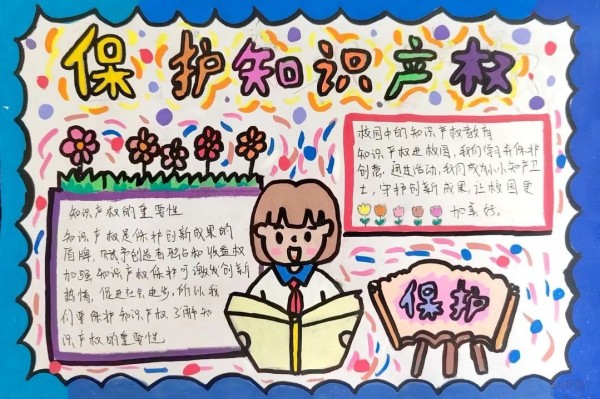 保护知识产权
校园中的知识产权教育
知识产权进校园，我们学习保护
创意，通过活动，我们成为小小知产卫
士，守护创新成果，让校园更
加美好。
知识产权的重要性
知识产权是保护创新成果的
盾牌，赋予创造者独占和收益权
加强知识产权保护可激发创新
热情，促进社会进步，所以我
们要保护知识产权了解知
识产权的重要性
保护